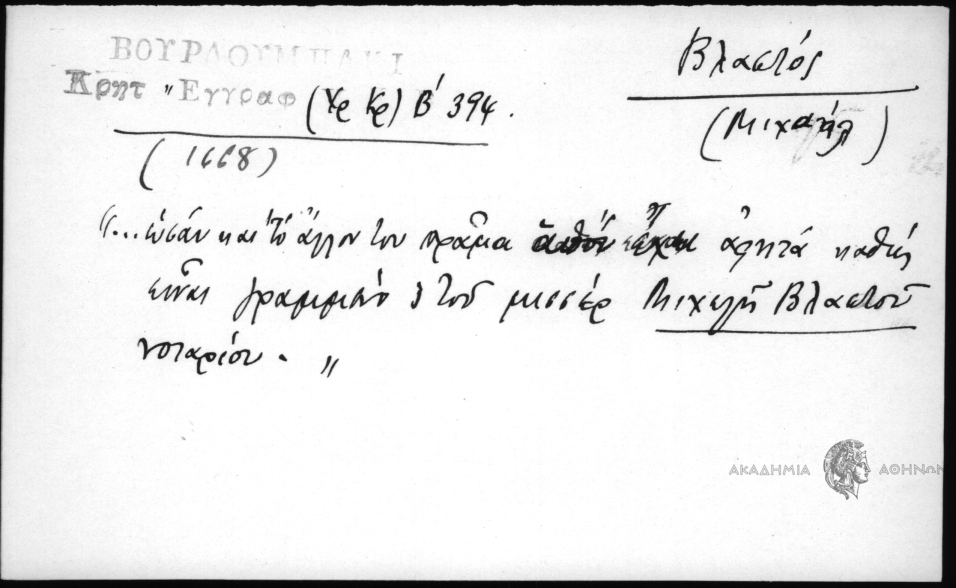 ΒΟΥΡΔΟΥΜΠΑΚΙ
Κρητ " Εγγραφ (Χρ Κρ) Β' 394.
(1668)
Βλαστός
(Μιχαήλ)
"... ὡσάν και τὸ ἄλλον του πρᾶμα καθώς
εἶναι γραμμένο τοῦ μισσέρ Μιχελῆ Βλαστοῦ
νοταρίου. "
ΑΚΑΔΗΜΙΑ ΑΘΗΝΩΝ